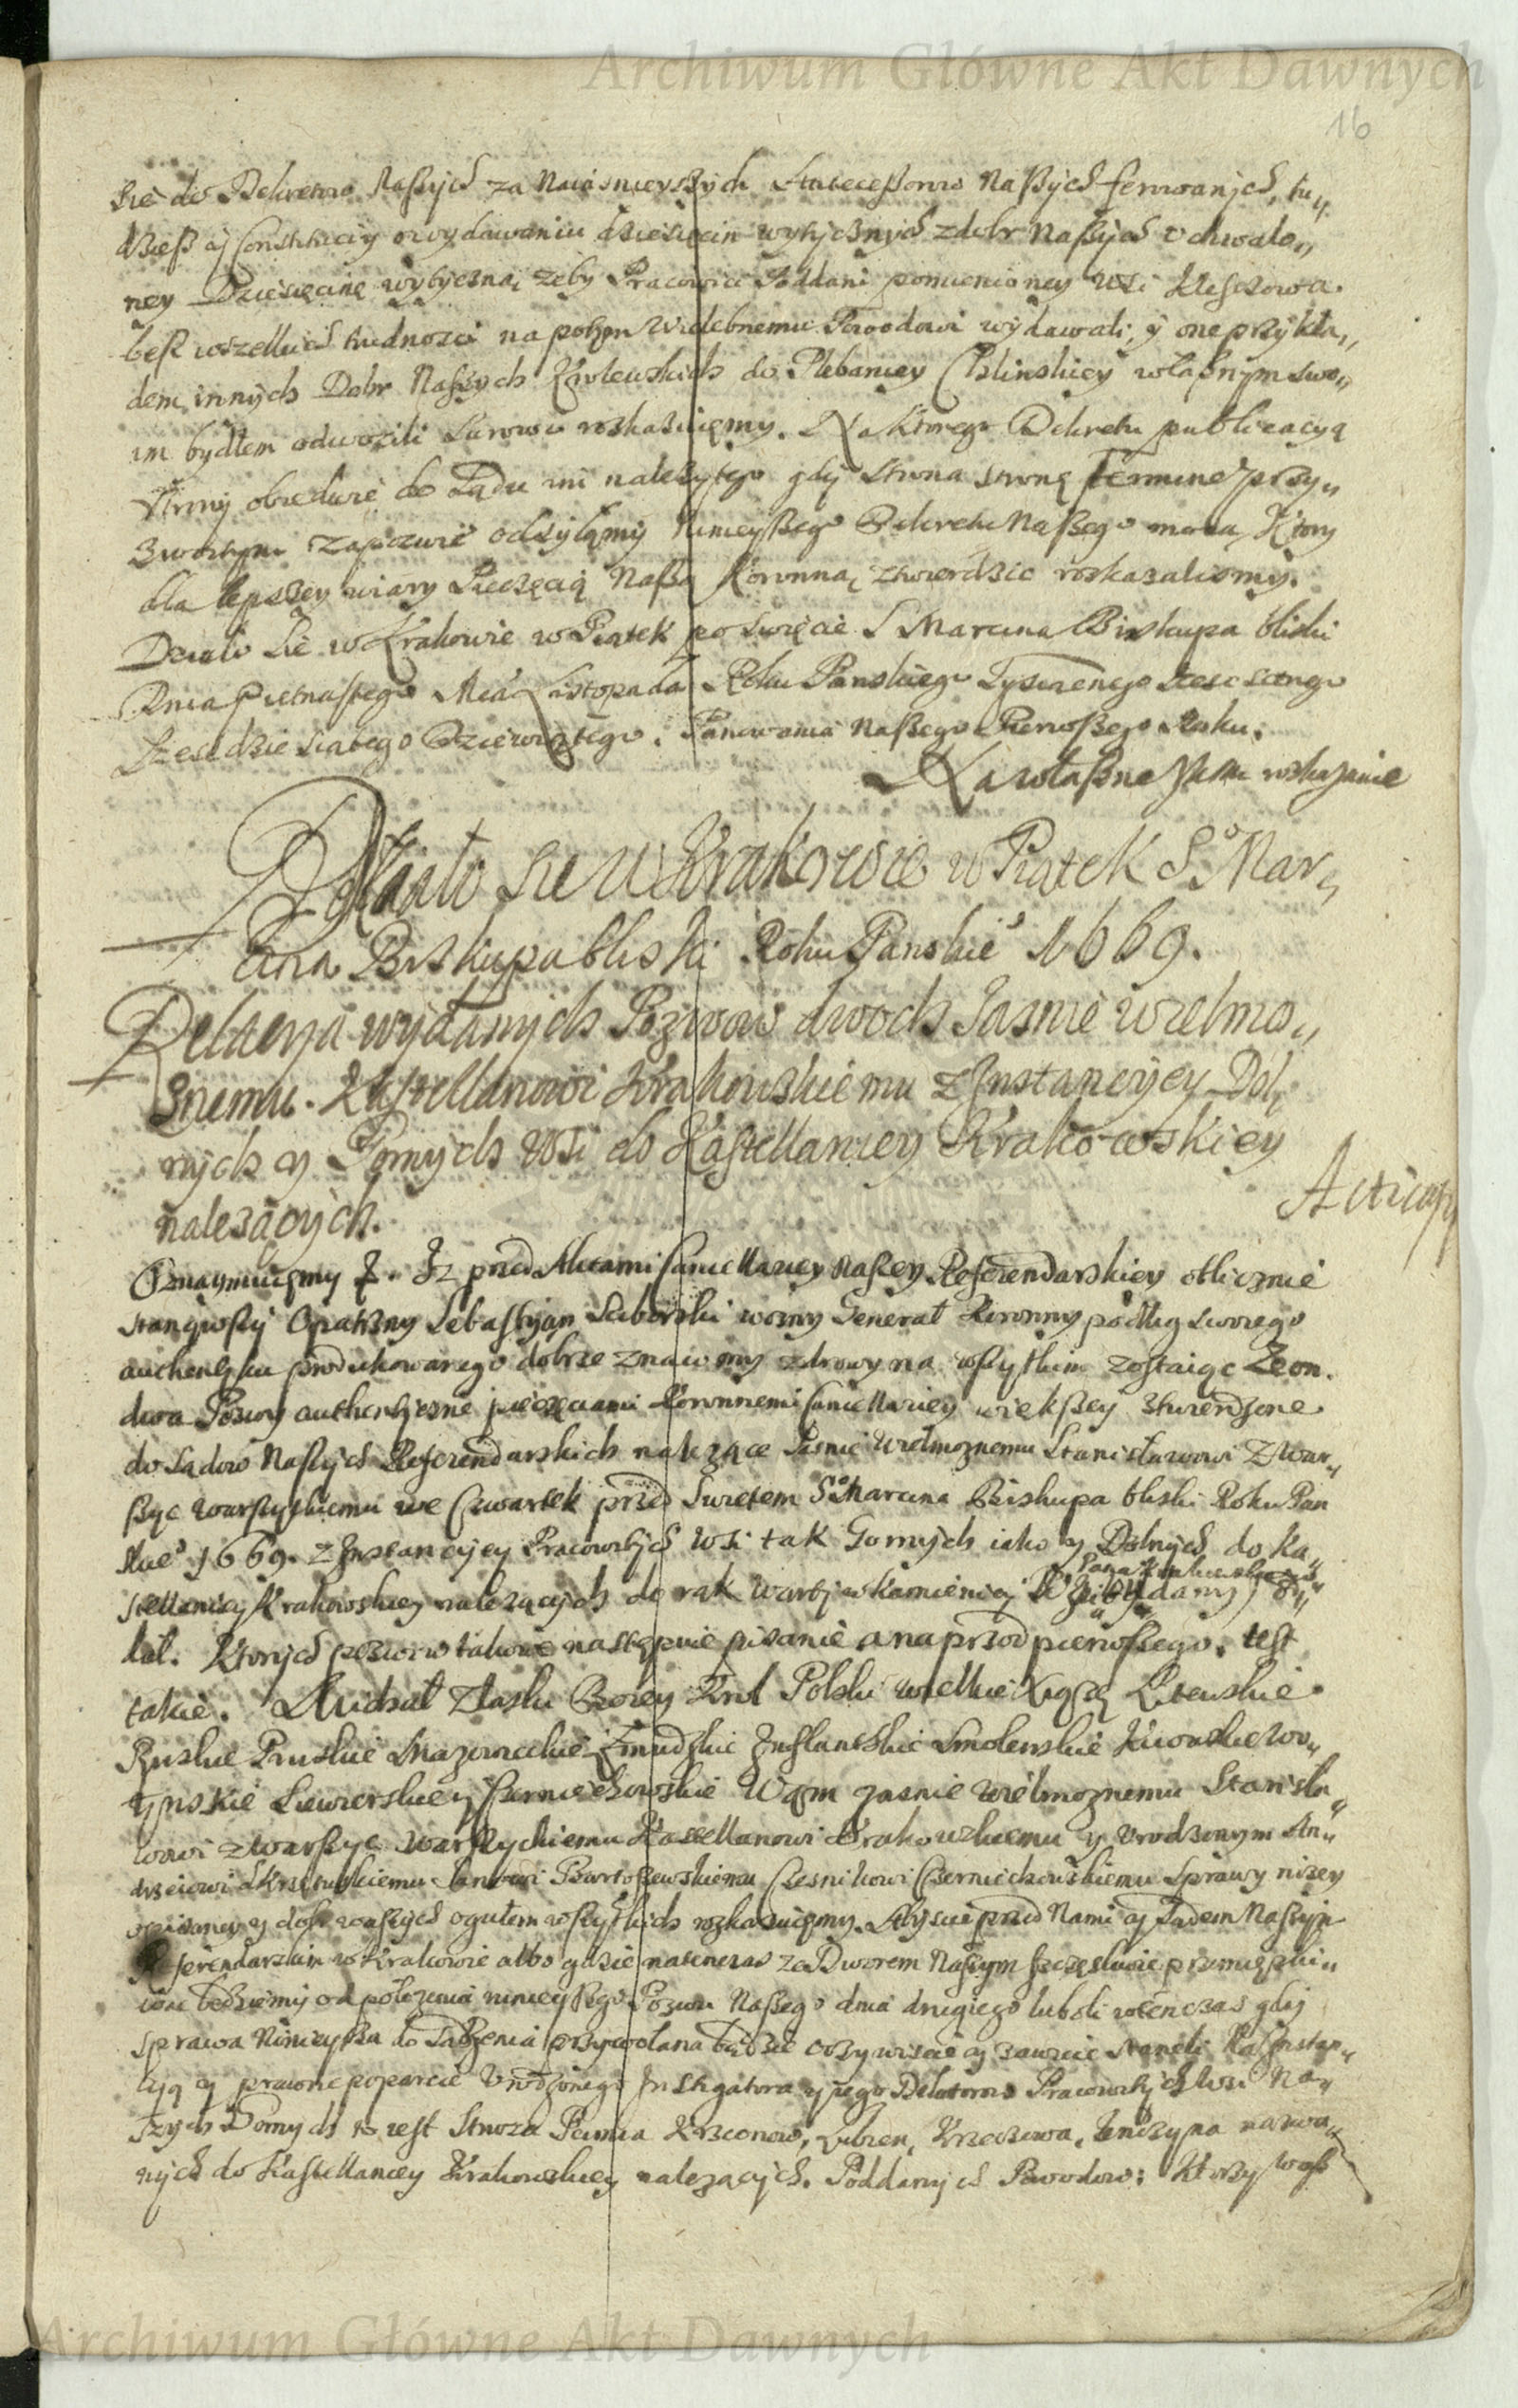 Archiwum Główne Akt Dawnych
16
sie do Dekretow Naszych za Naiasnieyszych Antecessorow Naszych ferowanych, tu„
dziesz y Constituciy o wydawaniu dziesięcin wytycznych z dobr Naszych uchwalo„
ney Dziesięcinę wytyczną żeby Pracowici Poddani pomienioney wsi
besz wszelkich trudnosci na potym Wielebnemu Powodowi wydawali, y one przykła„
dem innych Dobr Naszych Krolewskich do Plebaniey własnym swo„
im bydłem odwozili Surowo roskazuięmy. Na ktorego Dekretu publicacyą
Strony obiedwie do Sądu im należytego gdy Strona stronę Termine przy„
zwoitym zapozwie odsyłamy ninieyszego Dekretu Naszego mocą, Ktory
dla lepszey wiary Pieczęcią Naszą Koronną ztwierdzic roskazalismy.
Działo Sie w Krakowie w Piątek po Swięcie S Marcina Biskupa bliski
Dnia Pietnastego Mca Listopada Roku Panskiego Tysiącnego Szescsetnego
Szescdziesiątego Dziewiątego. Panowania Naszego Pierwszego Roku.
Na własne rozkazanie
Działo sie w Krakowie w Piątek S° Mar„
cina Biskupa bliski Roku Panskie° 1669.
Relacya wydanych Pozwow dwoch Jasnie Wielmo„
żnemu Kastellanowi Krakowskiemu z Instancyey Dol„
nych y Gornych Wsi do Kastellaniey Krakowskiey
należących.
Oznaymuięmy &. Jz przed Aktami Cancellariey naszey Referendarskiey oblicznie
stanąwszy Opatrzny Sebastyan woźny Generał Koronny podług swoiego
authentyku produkowanego dobrze znaiomy zdrowy na wszytkim zostaiąc Ze on
dwa Pozwy authentyczne pieczęciami Koronnemi Cancellariey wiekszey ztwierdzone
do Sądow Naszych Referendarskich należące Jasnie Wielmożnemu Stanisławowi Z War„
szyc Warszyckiemu we Czwartek przed Swiętem S° Marcina Biskupa bliski Roku Pan
skie° 1669. z Instancyey Pracowitych Wsi tak Gornych iako y Dolnych do Ka„
stellaniey Krakowskiey należących do rąk w kamienicy
dał. Ktorych pozwow takowe następuie pisanie a naprzod pierwszego, iest
takie. Michał z łaski Bożey Krol Polski wielkie Xiążę Litewskie
Ruskie Pruskie Mazowieckie Zmudzkie Inflanskie Smolenskie Kiiowskie Wo„
łynskie Siewierskie y Czerniechowskie Wam Jasnie Wielmożnemu Stanisła„
wowi z Warszyc Warszyckiemu Kasztellanowi Krakowskiemu y Urodzonym An„
drzeiowi Skrzetuskiemu Janowi Czesnikowi Czerniechowskiemu Sprawy niżey
opisaney y dobr waszych ogułem wszytkich rozkazuięmy. Abyscie przed Nami y Sądem Naszym
Referendarskim w Krakowie albo gdzie natenczas ze Dworem Naszym szczęsliwie przemięszki„
wac będziemy od położenia ninieyszego Pozwu Naszego dnia drugiego lubo li wtenczas gdy
sprawa Ninieysza do Sądzenia przywołana będzie oczywiscie y zawicie stanęli Na Instan„
cyą y prawne poparcie Urodzonego Instigatora y iego Delatorow Pracowitych Wsi Na„
szych Gornych to iest Stroza Krzeczonow, Lubien, Krzeczowa, Tenczyna nazwa„
nych do Kastellaniey Krakowskiey należących. Poddanych Powodow: Ktorzy Was
Archiwum Główne Akt Dawnych